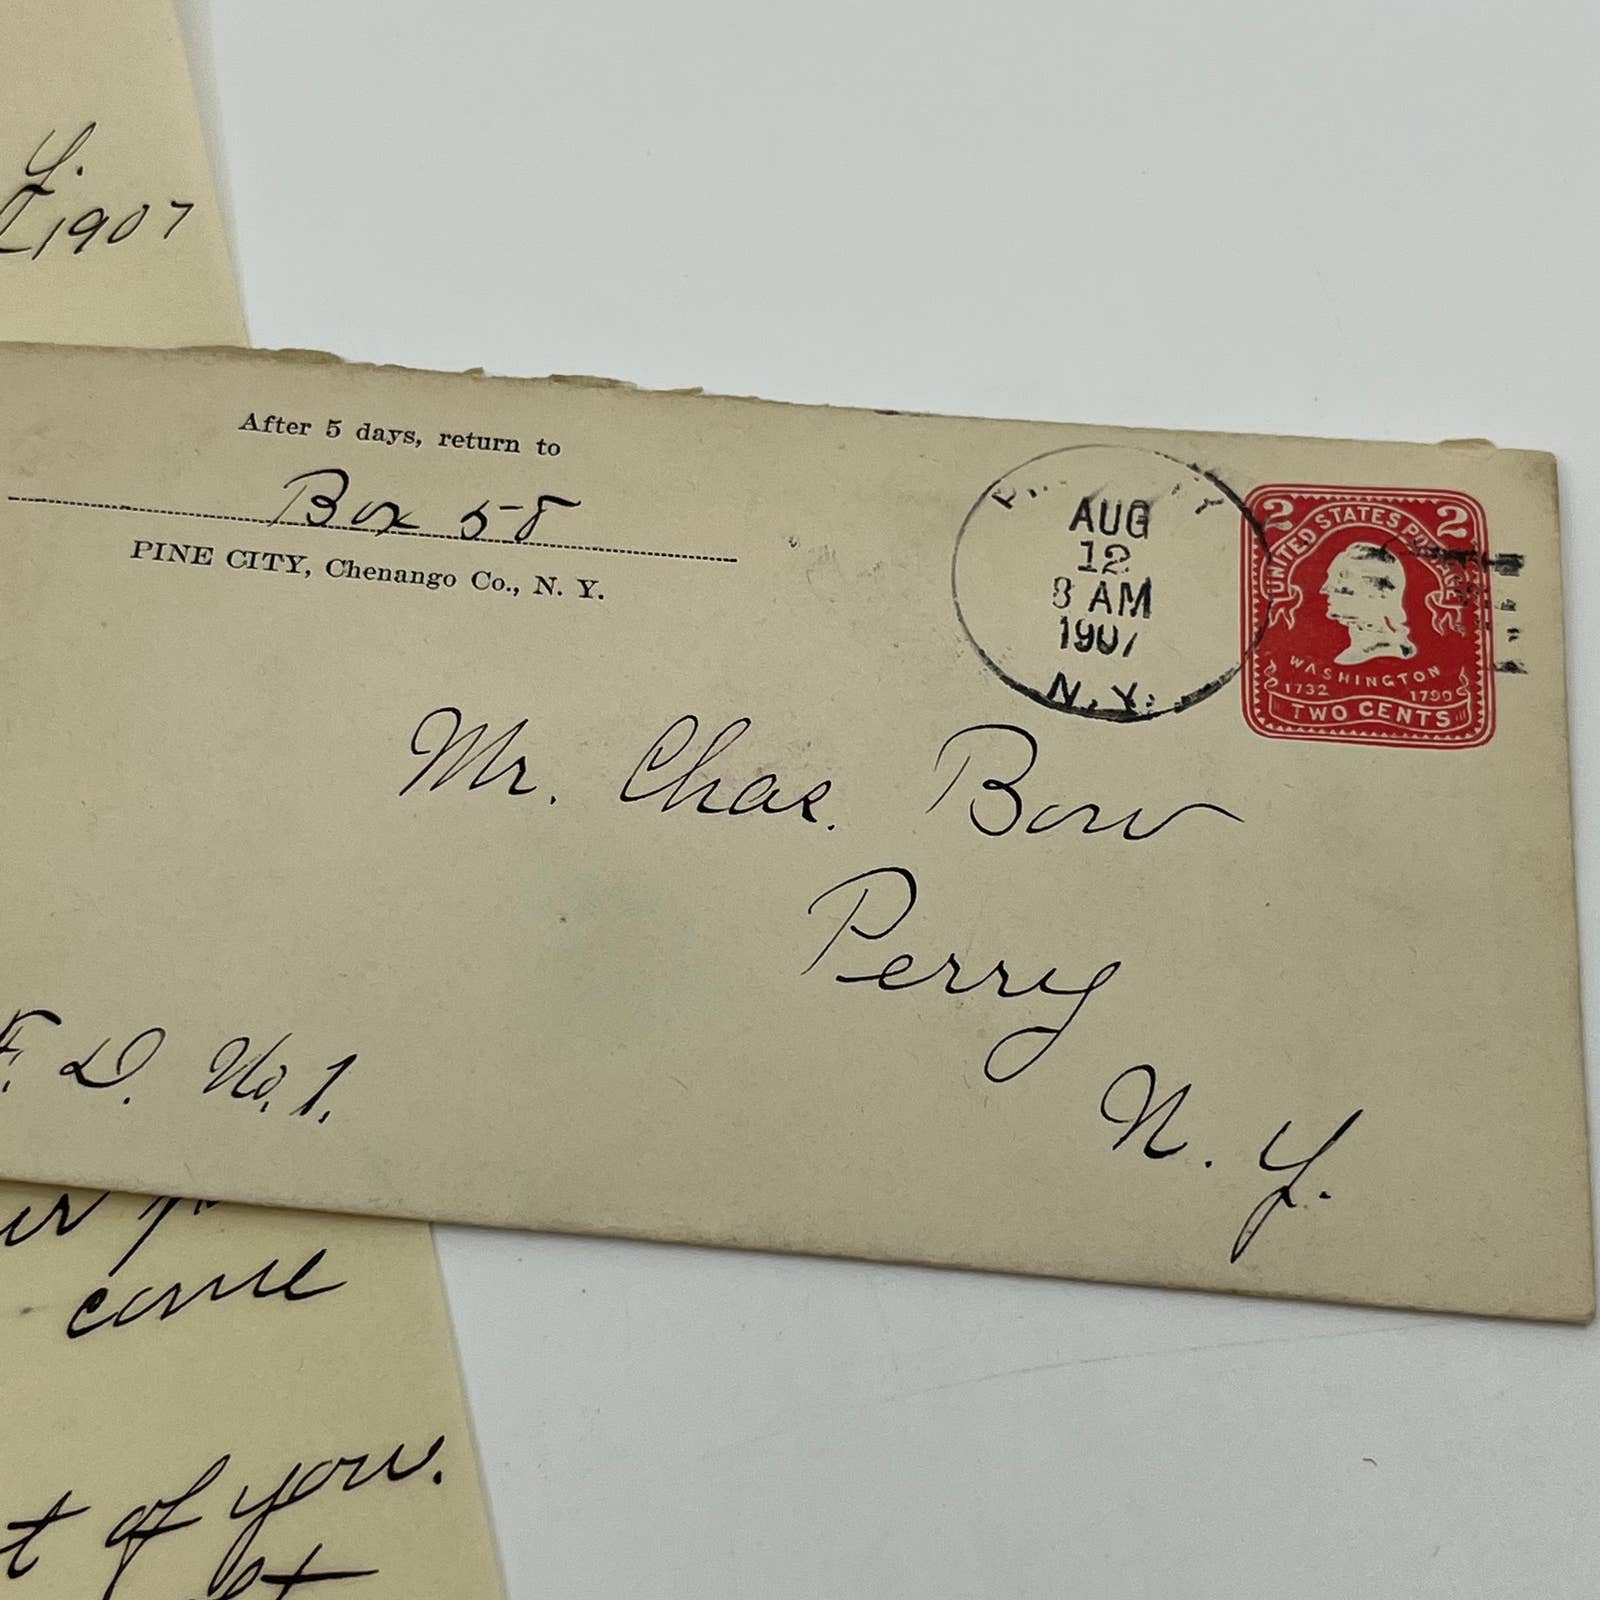 Y.
1907
After 5 days, return to
Box 58
PINE CITY, Chenango Co., N. Y.
AUG
12
8 AM
1907
N.Y.
2 2
UNITED STATES POSTAGE
WASHINGTON
1732 1799
TWO CENTS
Mr. Chas. Bow
Perry
N. Y.
F. D. No. 1.
come
of you.